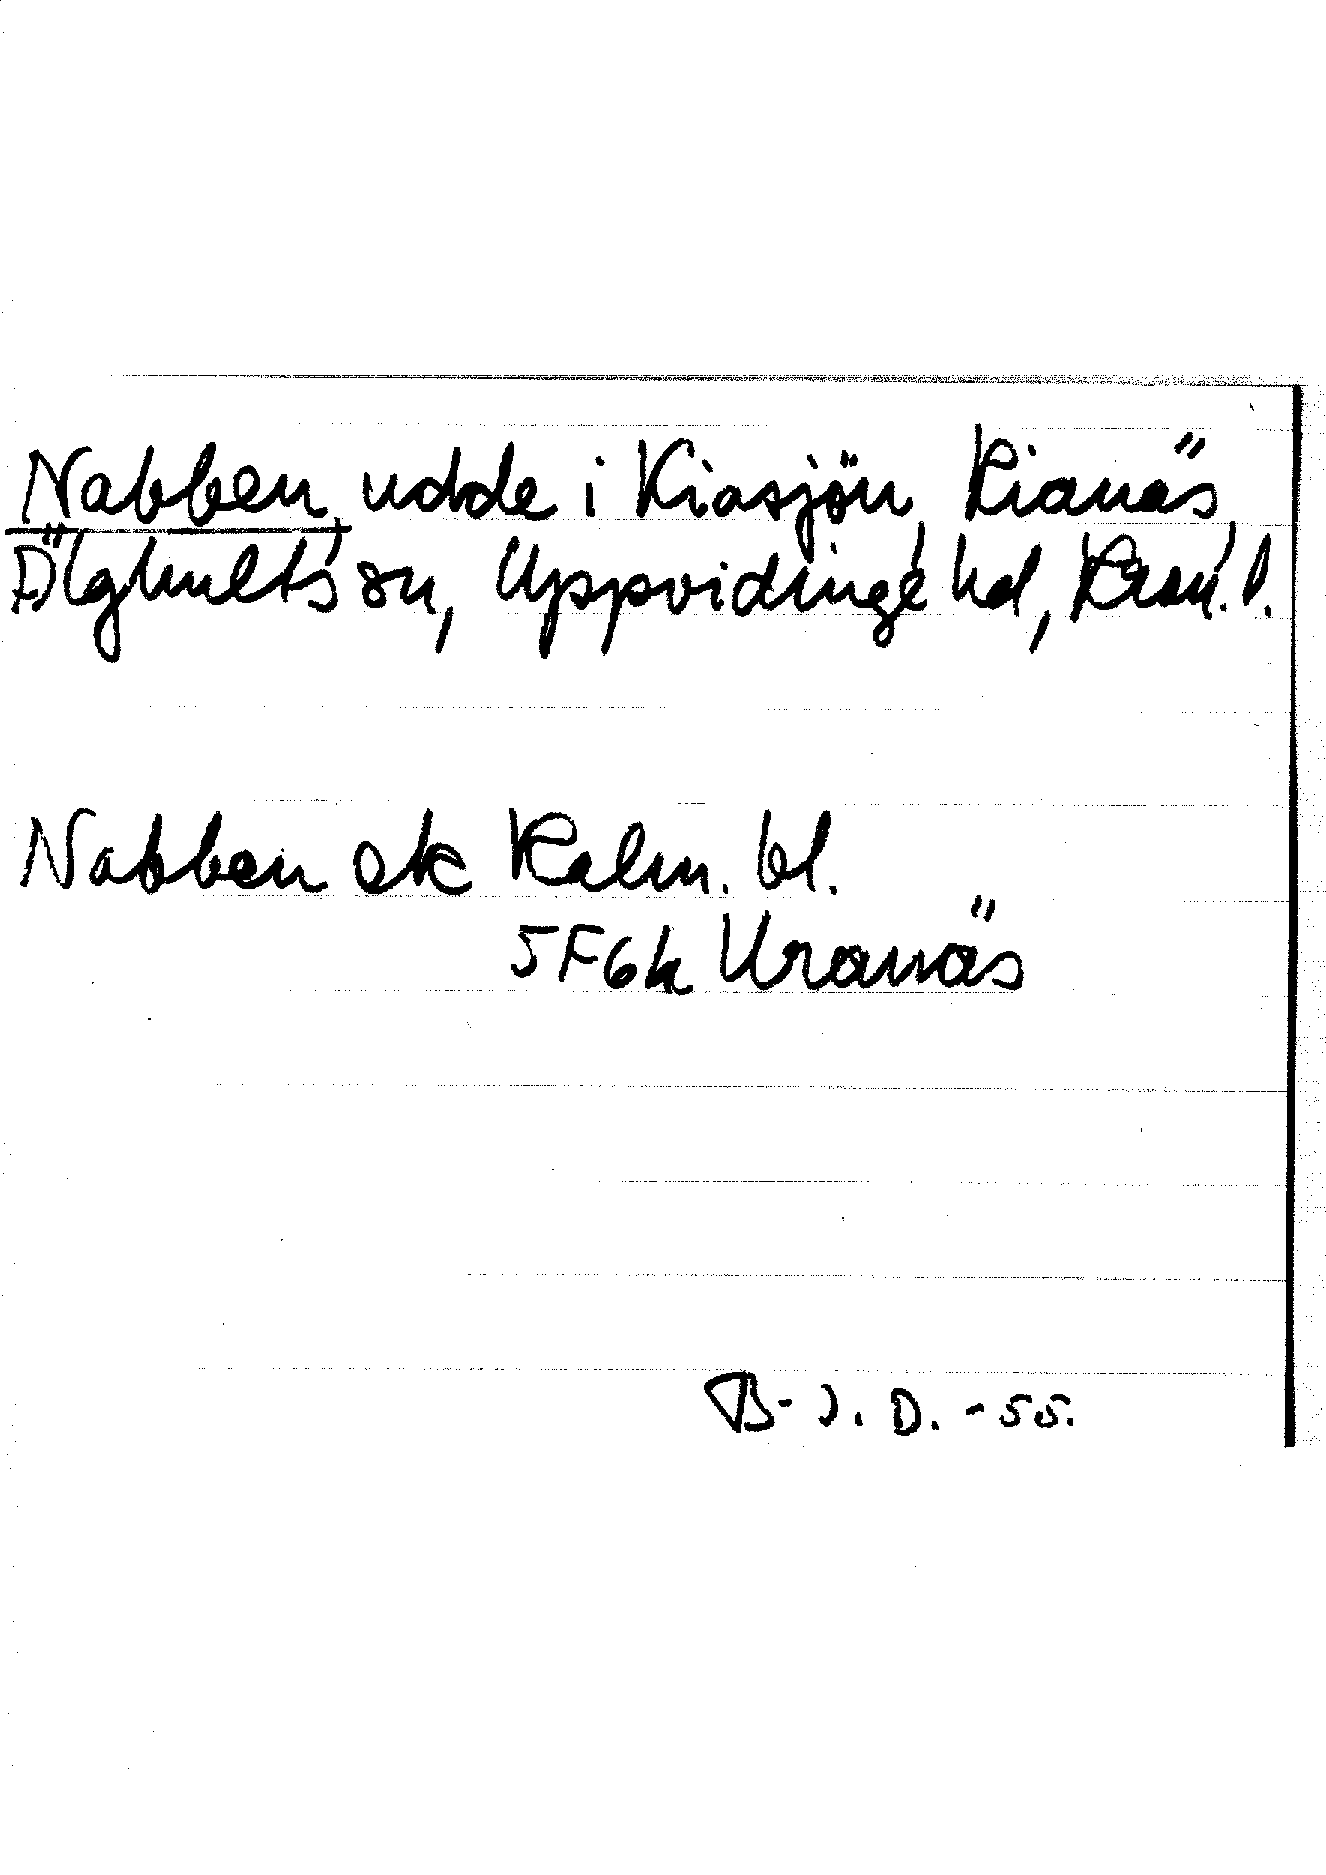 Nabben, udde i Kiasjön, Kianäs,
Älghults sn, Uppvidinge hd, Kron. l.
Nabben ek Kalm. bl.
5F6k Kranäs
B-J. D. -55.